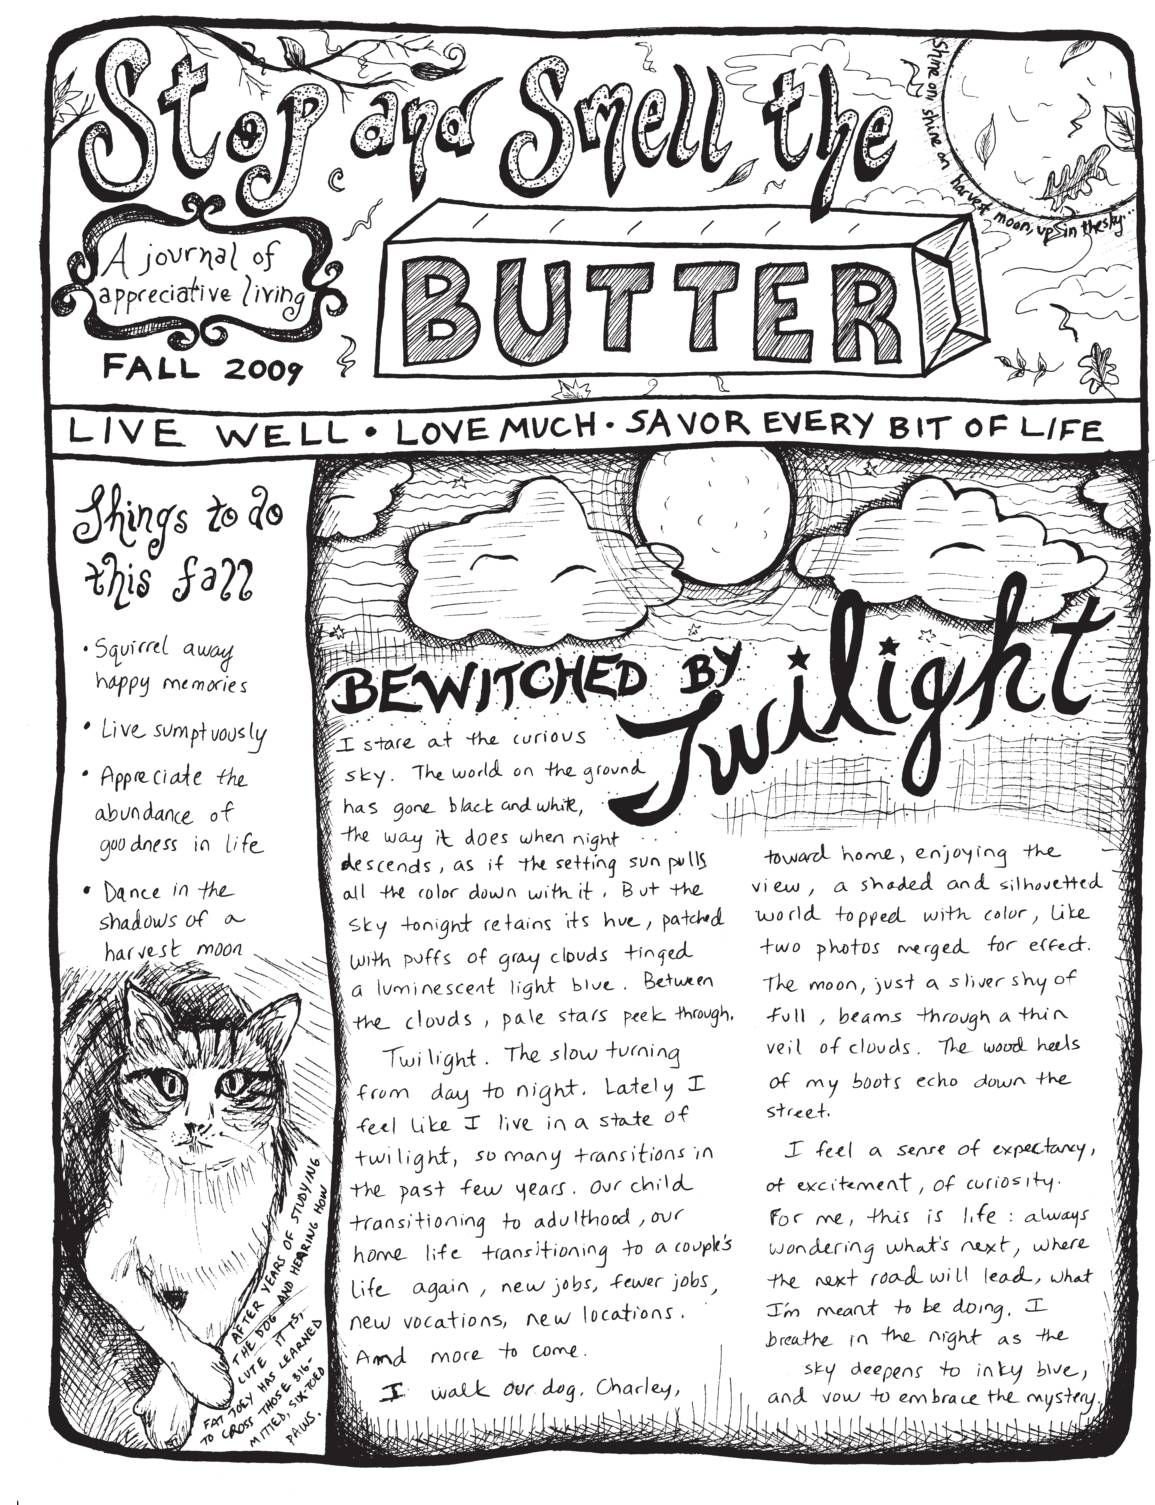 Stop and Smell the
BUTTER
shine on, shine on harvest moon, up in the sky...
A journal of
appreciative living
FALL 2009
LIVE WELL • LOVE MUCH • SAVOR EVERY BIT OF LIFE
Things to do
this fall
• Squirrel away
happy memories
• Live sumptuously
• Appreciate the
abundance of
goodness in life
• Dance in the
shadows of a
harvest moon
AFTER YEARS OF STUDYING
THE DOG AND HEARING HOW
CUTE IT IS,
FAT JOEY HAS LEARNED
TO CROSS THOSE BIG-
MITTED, SIX-TOED
PAWS.
BEWITCHED BY
Twilight
I stare at the curious
sky. The world on the ground
has gone black and white,
the way it does when night
descends, as if the setting sun pulls
all the color down with it. But the
sky tonight retains its hue, patched
with puffs of gray clouds tinged
a luminescent light blue. Between
the clouds, pale stars peek through.
Twilight. The slow turning
from day to night. Lately I
feel like I live in a state of
twilight, so many transitions in
the past few years. Our child
transitioning to adulthood, our
home life transitioning to a couple's
life again, new jobs, fewer jobs,
new vocations, new locations.
And more to come.
I walk our dog, Charley,
toward home, enjoying the
view, a shaded and silhouetted
world topped with color, like
two photos merged for effect.
The moon, just a sliver shy of
full, beams through a thin
veil of clouds. The wood heels
of my boots echo down the
street.
I feel a sense of expectancy,
of excitement, of curiosity.
For me, this is life: always
wondering what's next, where
the next road will lead, what
I'm meant to be doing. I
breathe in the night as the
sky deepens to inky blue,
and vow to embrace the mystery.